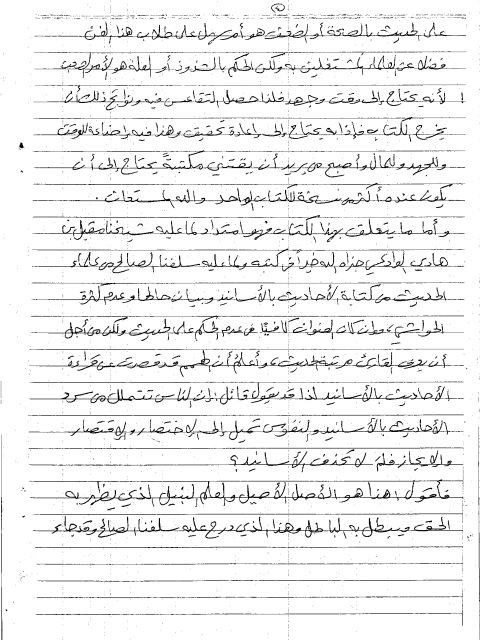 (٥)
على الحديث بالصحة أو الضعف هو أمر سهل على طلاب هذا الفن
فضلا عن العلماء المشتغلين به ولكن الحكم بالشذوذ أو العلة هو الأمر الصعب
لأنه يحتاج إلى وقت وجهد فلذا حصل التقاعس فيه ونواتج ذلك أن
يخرج الكتاب فإذا به يحتاج إلى إعادة تحقيق وهذا فيه إضاعة للوقت
وللجهد وللمال وأصبح من يريد أن يقتني مكتبةً يحتاج إلى أن
يكون عنده أكثر من نسخة للكتاب الواحد والله المستعان .
وأما ما يتعلق بهذا الكتاب فهو امتداد لما عليه شيخنا مقبل بن
هادي الوادعي جزاه الله خيراً في كتبه ولما عليه سلفنا الصالح من علماء
الحديث من كتابة الأحاديث بالأسانيد وبيان حالها وعدم كثرة
الحواشي، وإن كان العنوان كافيًا في عدم الحكم على الحديث ولكن من أجل
أن يعرف القارئ مرتبة الحديث، وأعلم أن الهمم قد قصرت عن قراءة
الأحاديث بالأسانيد لذا قد يقول قائل: إن الناس تتململ من سرد
الأحاديث بالأسانيد والنفوس تميل إلى الاختصار والاقتصار
والإيجاز فلم لا تحذف الأسانيد؟
فأقول: هذا هو الأصل الأصيل والعلم النبيل الذي يظهر به
الحق ويبطل به الباطل وهذا الذي درج عليه سلفنا الصالح وقد جاء